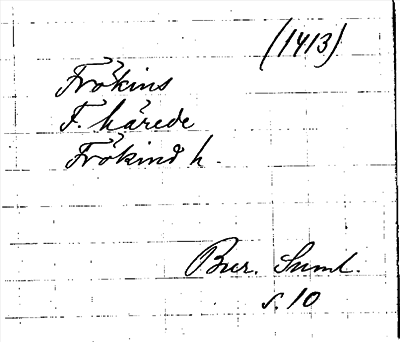 (1413)
Frökins
F. härede
Frökind h.
Bur. Suml.
s. 10